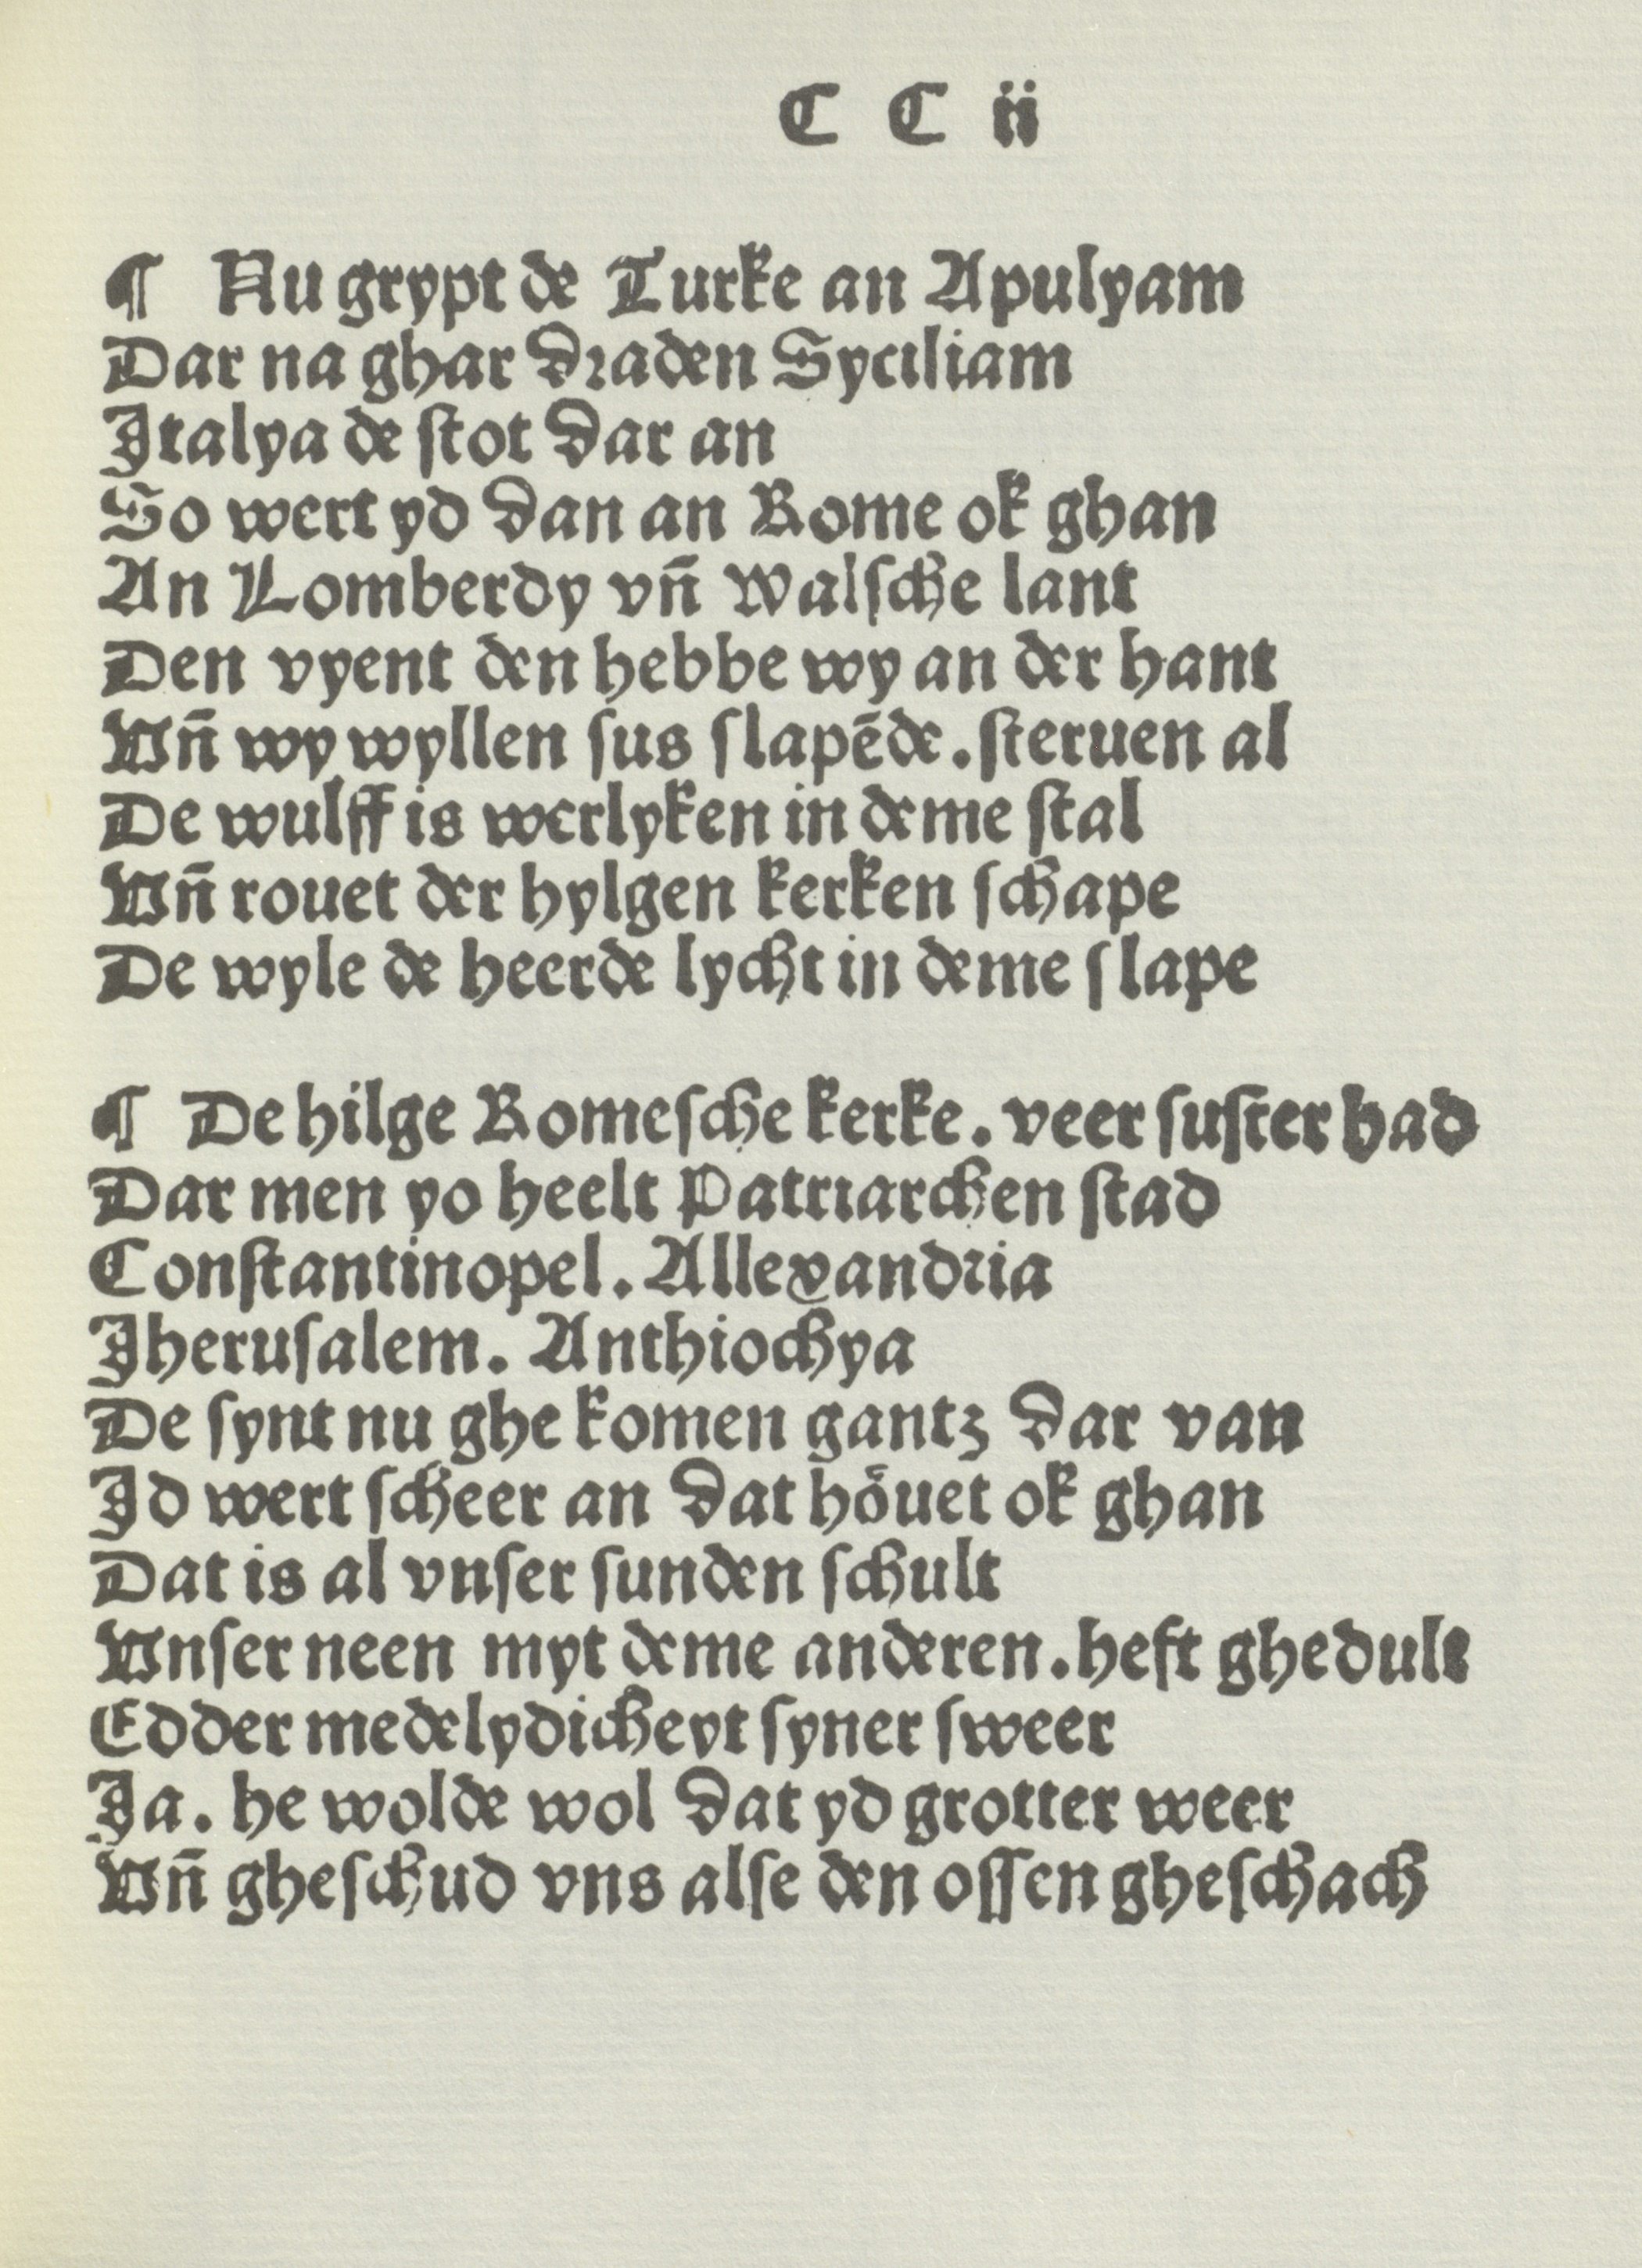 C C ii
¶ Nu grypt de Turke an Apulyam
Dar na ghar draden Syciliam
Italya de stot dar an
So wert yd dan an Rome ok ghan
An Lomberdy vn̄ walsche lant
Den vyent den hebbe wy an der hant
Vn̄ wy wyllen sus slapēde. steruen al
De wulff is werlyken in deme stal
Vn̄ rouet der hylgen kerken schape
De wyle de heerde lycht in deme slape
¶ De hilge Romesche kerke. veer suster had
Dar men yo heelt Patriarchen stad
Constantinopel. Allexandria
Jherusalem. Anthiochya
De synt nu ghe komen gantz dar van
Id wert scheer an dat hoͤuet ok ghan
Dat is al vnser sunden schult
Vnser neen myt deme anderen. heft ghedult
Edder medelydicheyt syner sweer
Ja. he wolde wol dat yd grotter weer
Vn̄ gheschud vns alse den ossen gheschach